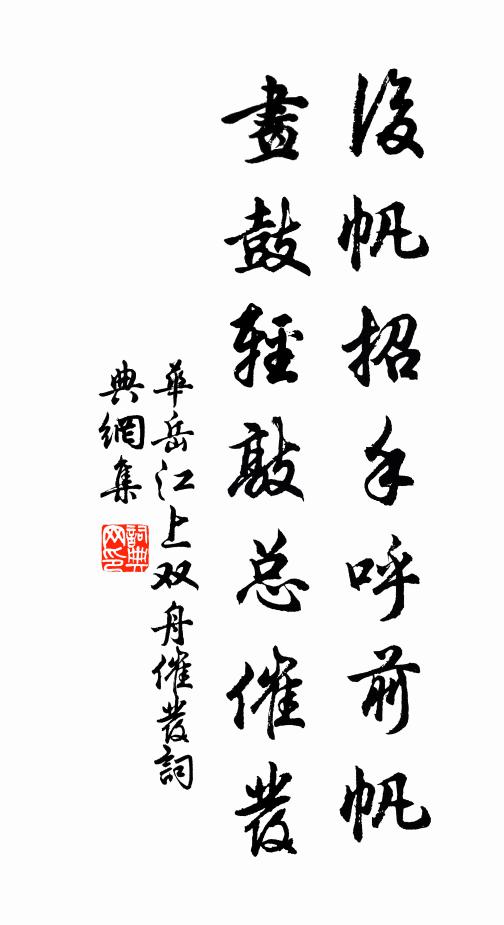 後帆招手呼前帆
畫鼓輕敲总催發
華岳江上双舟催發詞
典網集
詞典
网印